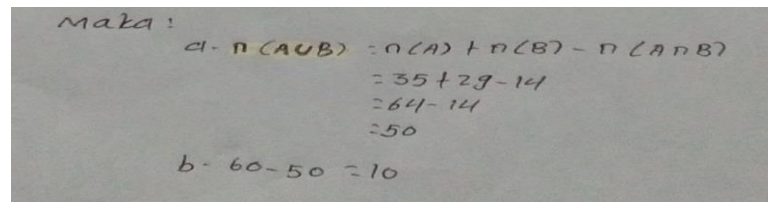 Maka :
a. n (A∪B) = n(A) + n(B) - n (A∩B)
= 35 + 29 - 14
= 64 - 14
= 50
b. 60 - 50 = 10